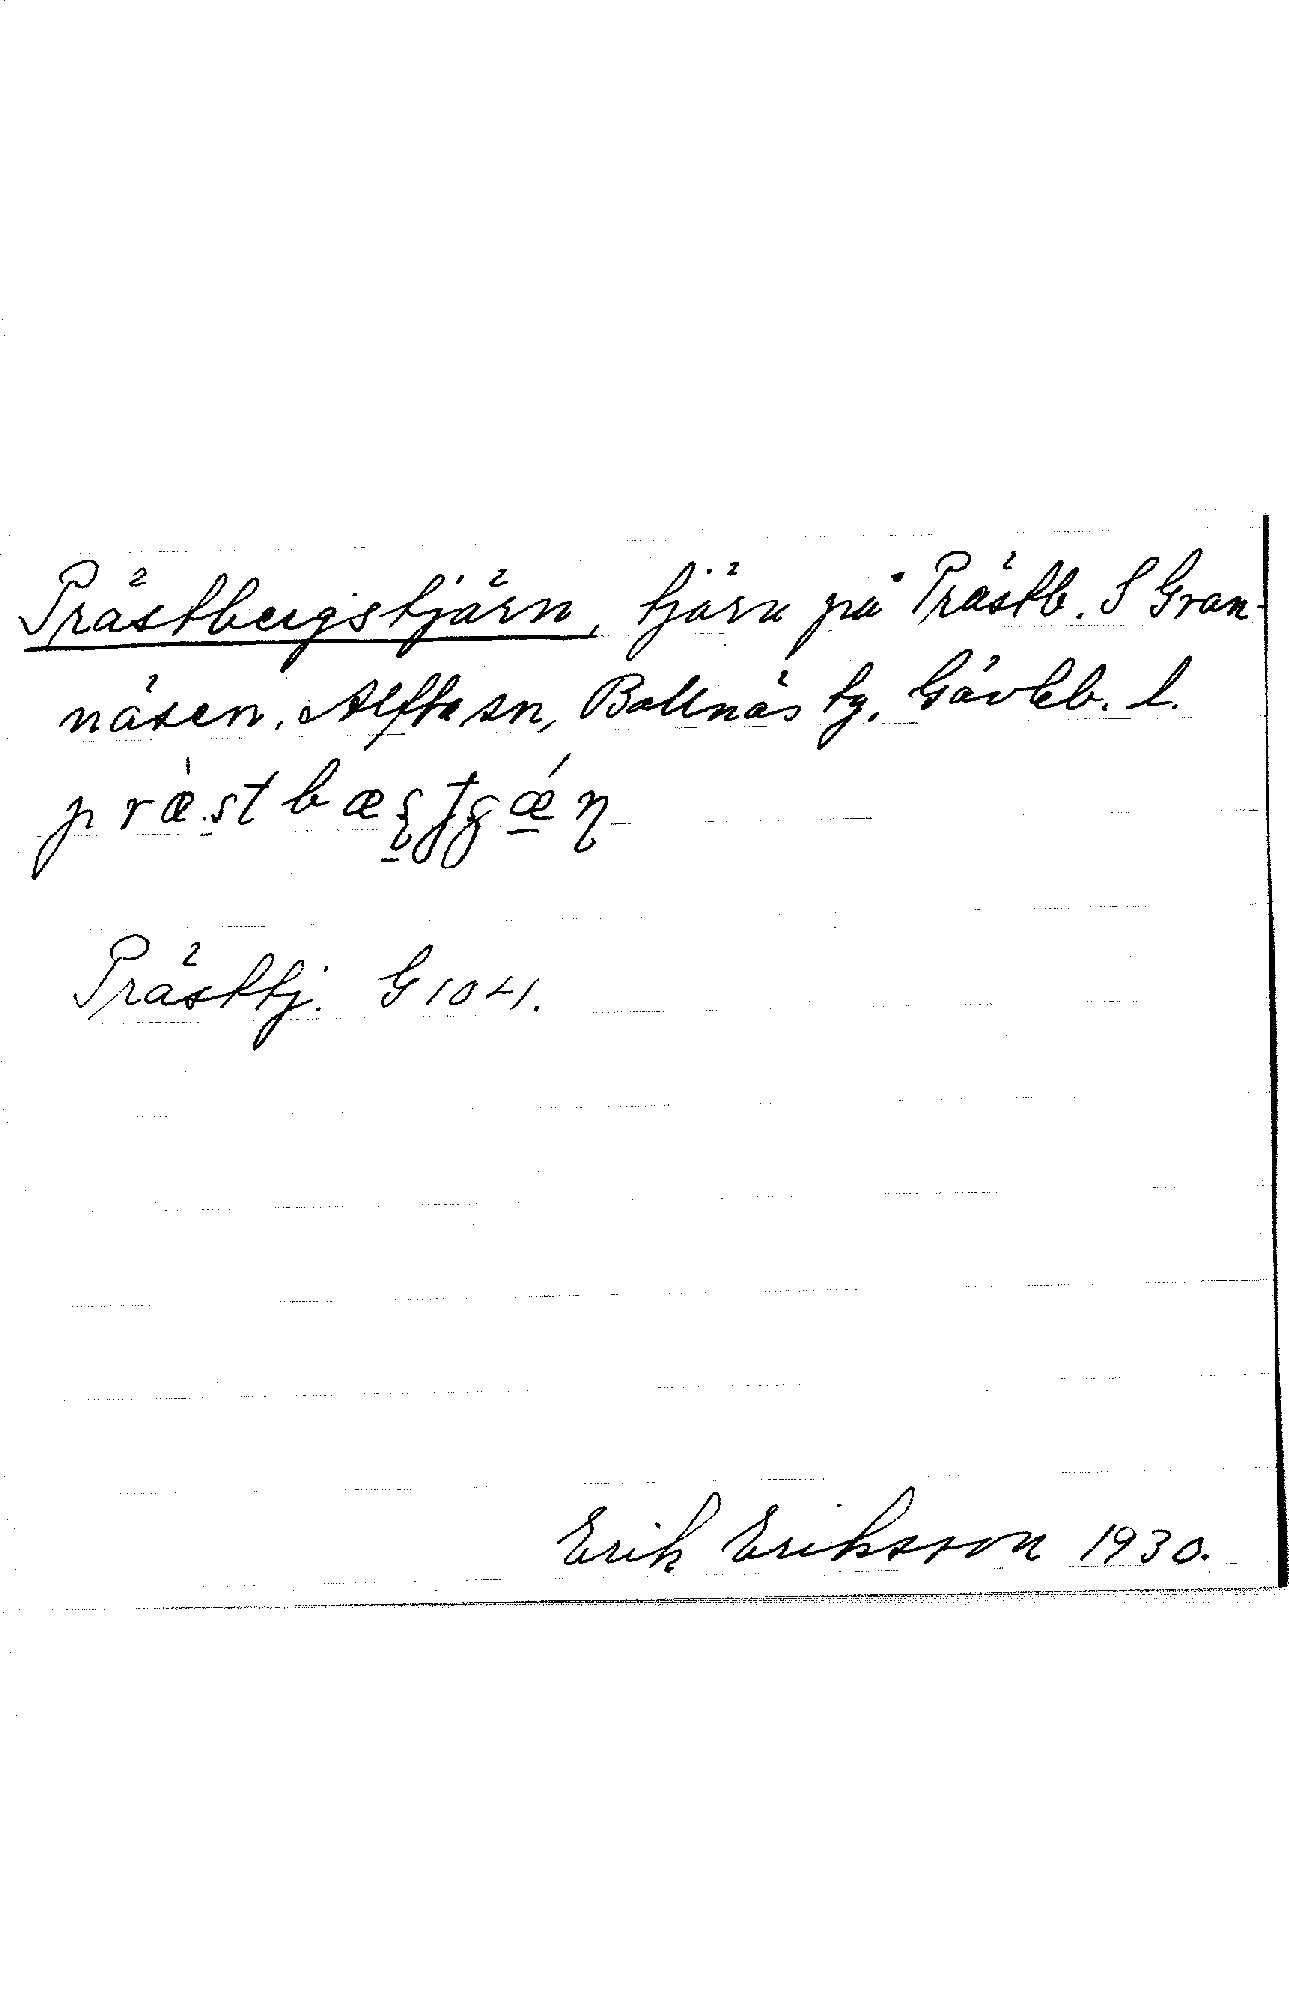 Prästbergstjärn, tjärn på Prästb. S Gran-
näsen, Alfta sn, Bollnäs tg, Gävleb. l.
Prästtj. G 104.
Erik Eriksson 1930.